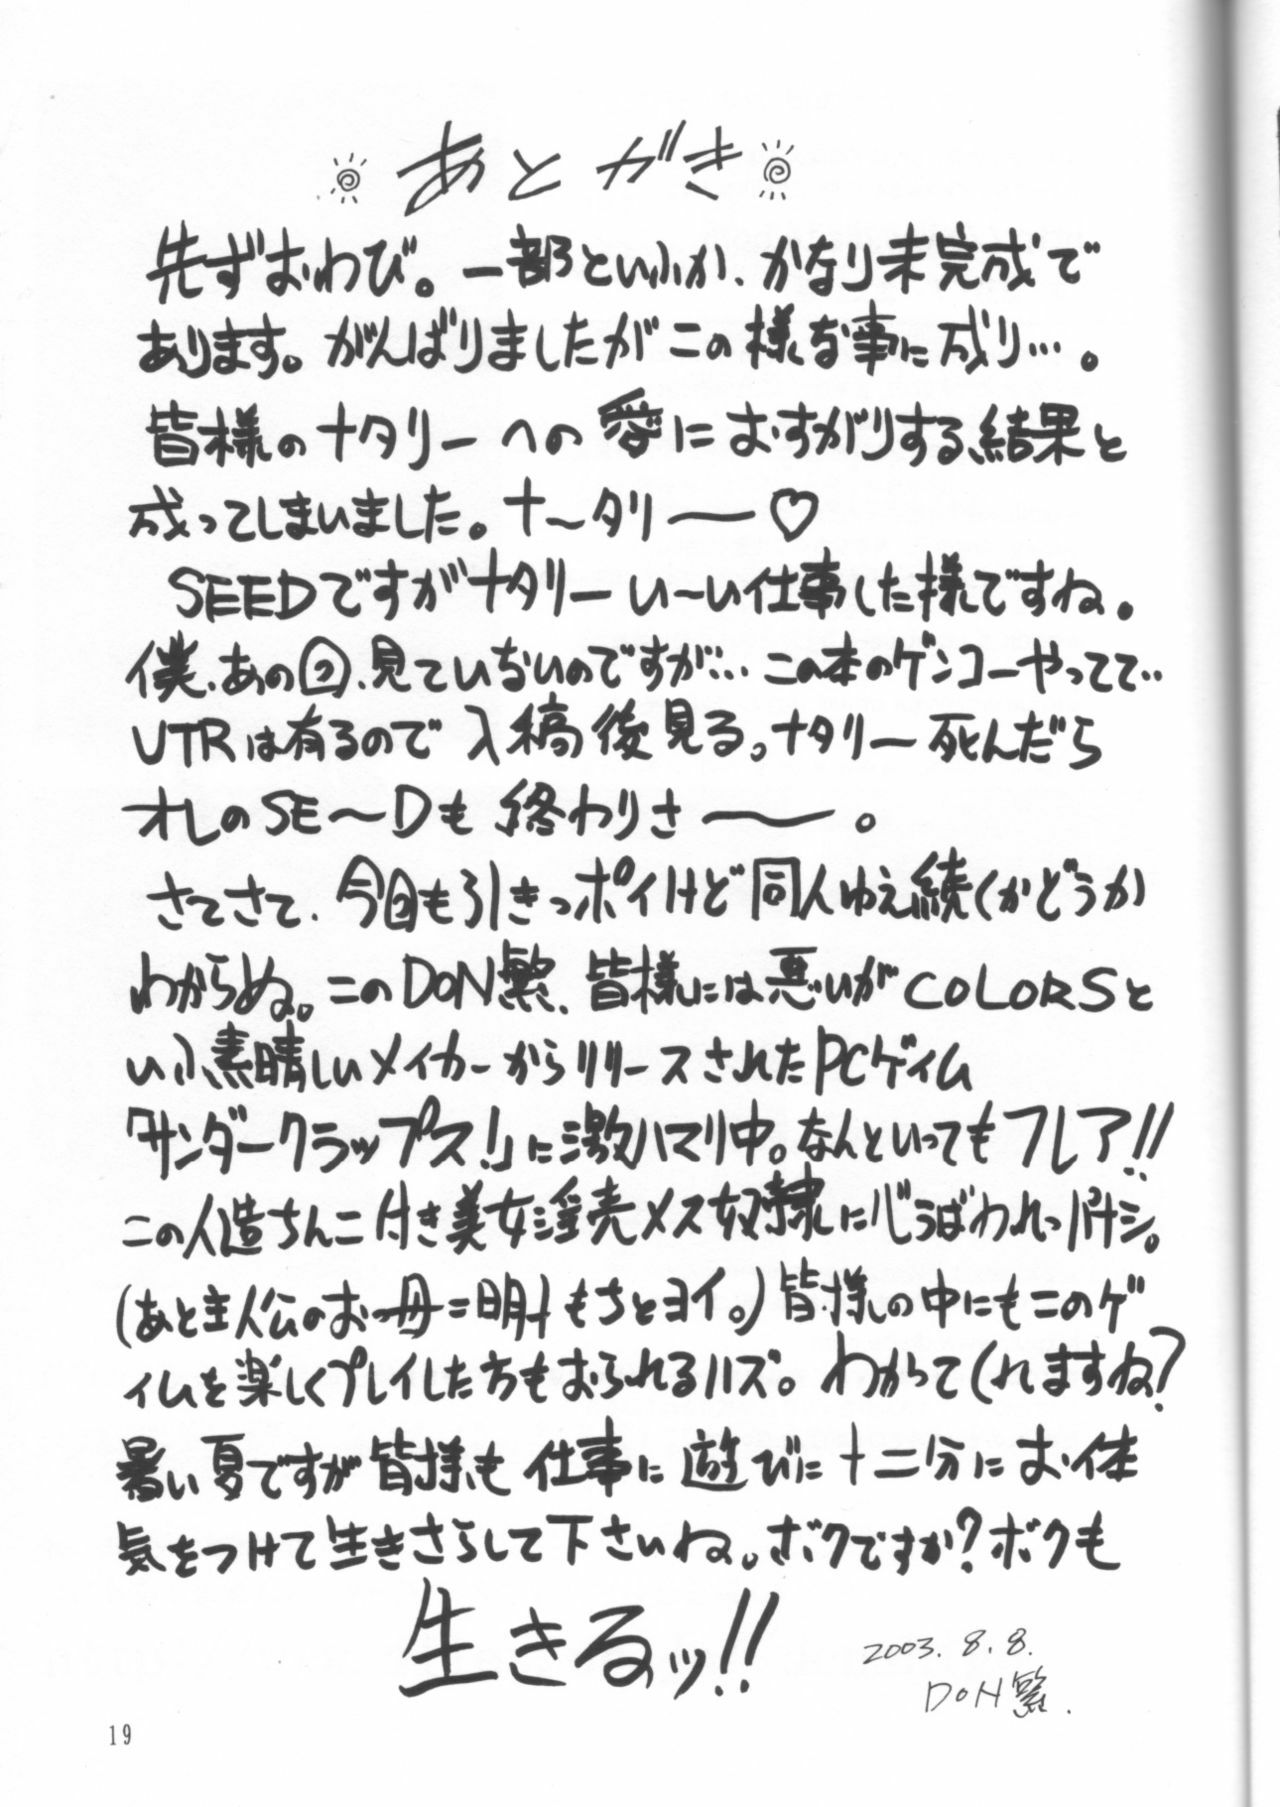 あとがき
先ずおわび。一部といふか、かなり未完成で
あります。がんばりましたがこの様な事に成り…。
皆様のナタリーへの愛におすがりする結果と
成ってしまいました。ナ〜タリ──♡
SEEDですがナタリーい〜い仕事した様ですね。
僕、あの回、見ていないのですが… この本のゲンコーやってて‥
VTRは有るので入稿後見る。ナタリー死んだら
オレのSE〜Dも終わりさ──。
さてさて、今回も引きっポイけど同人ゆえ続くかどうか
わからぬ。このDON繁、皆様には悪いがCOLORSと
いふ素晴しいメイカーからリリースされたPCゲィム
「サンダークラップス!」に激ハマリ中。なんといってもフレア!!
この人造ちんこ付き美女淫売メス奴隷に心うばわれっパナシ。
(あと主人公のお母=明日もちとヨイ。)皆様の中にもこのゲ
ィムを楽しくプレイした方もおられるハズ。わかってくれますね?
暑い夏ですが皆様も仕事に遊びに十二分にお体
気をつけて生きさらして下さいね。ボクですか?ボクも
生きるッ!!
2003.8.8.
DON繁.
19